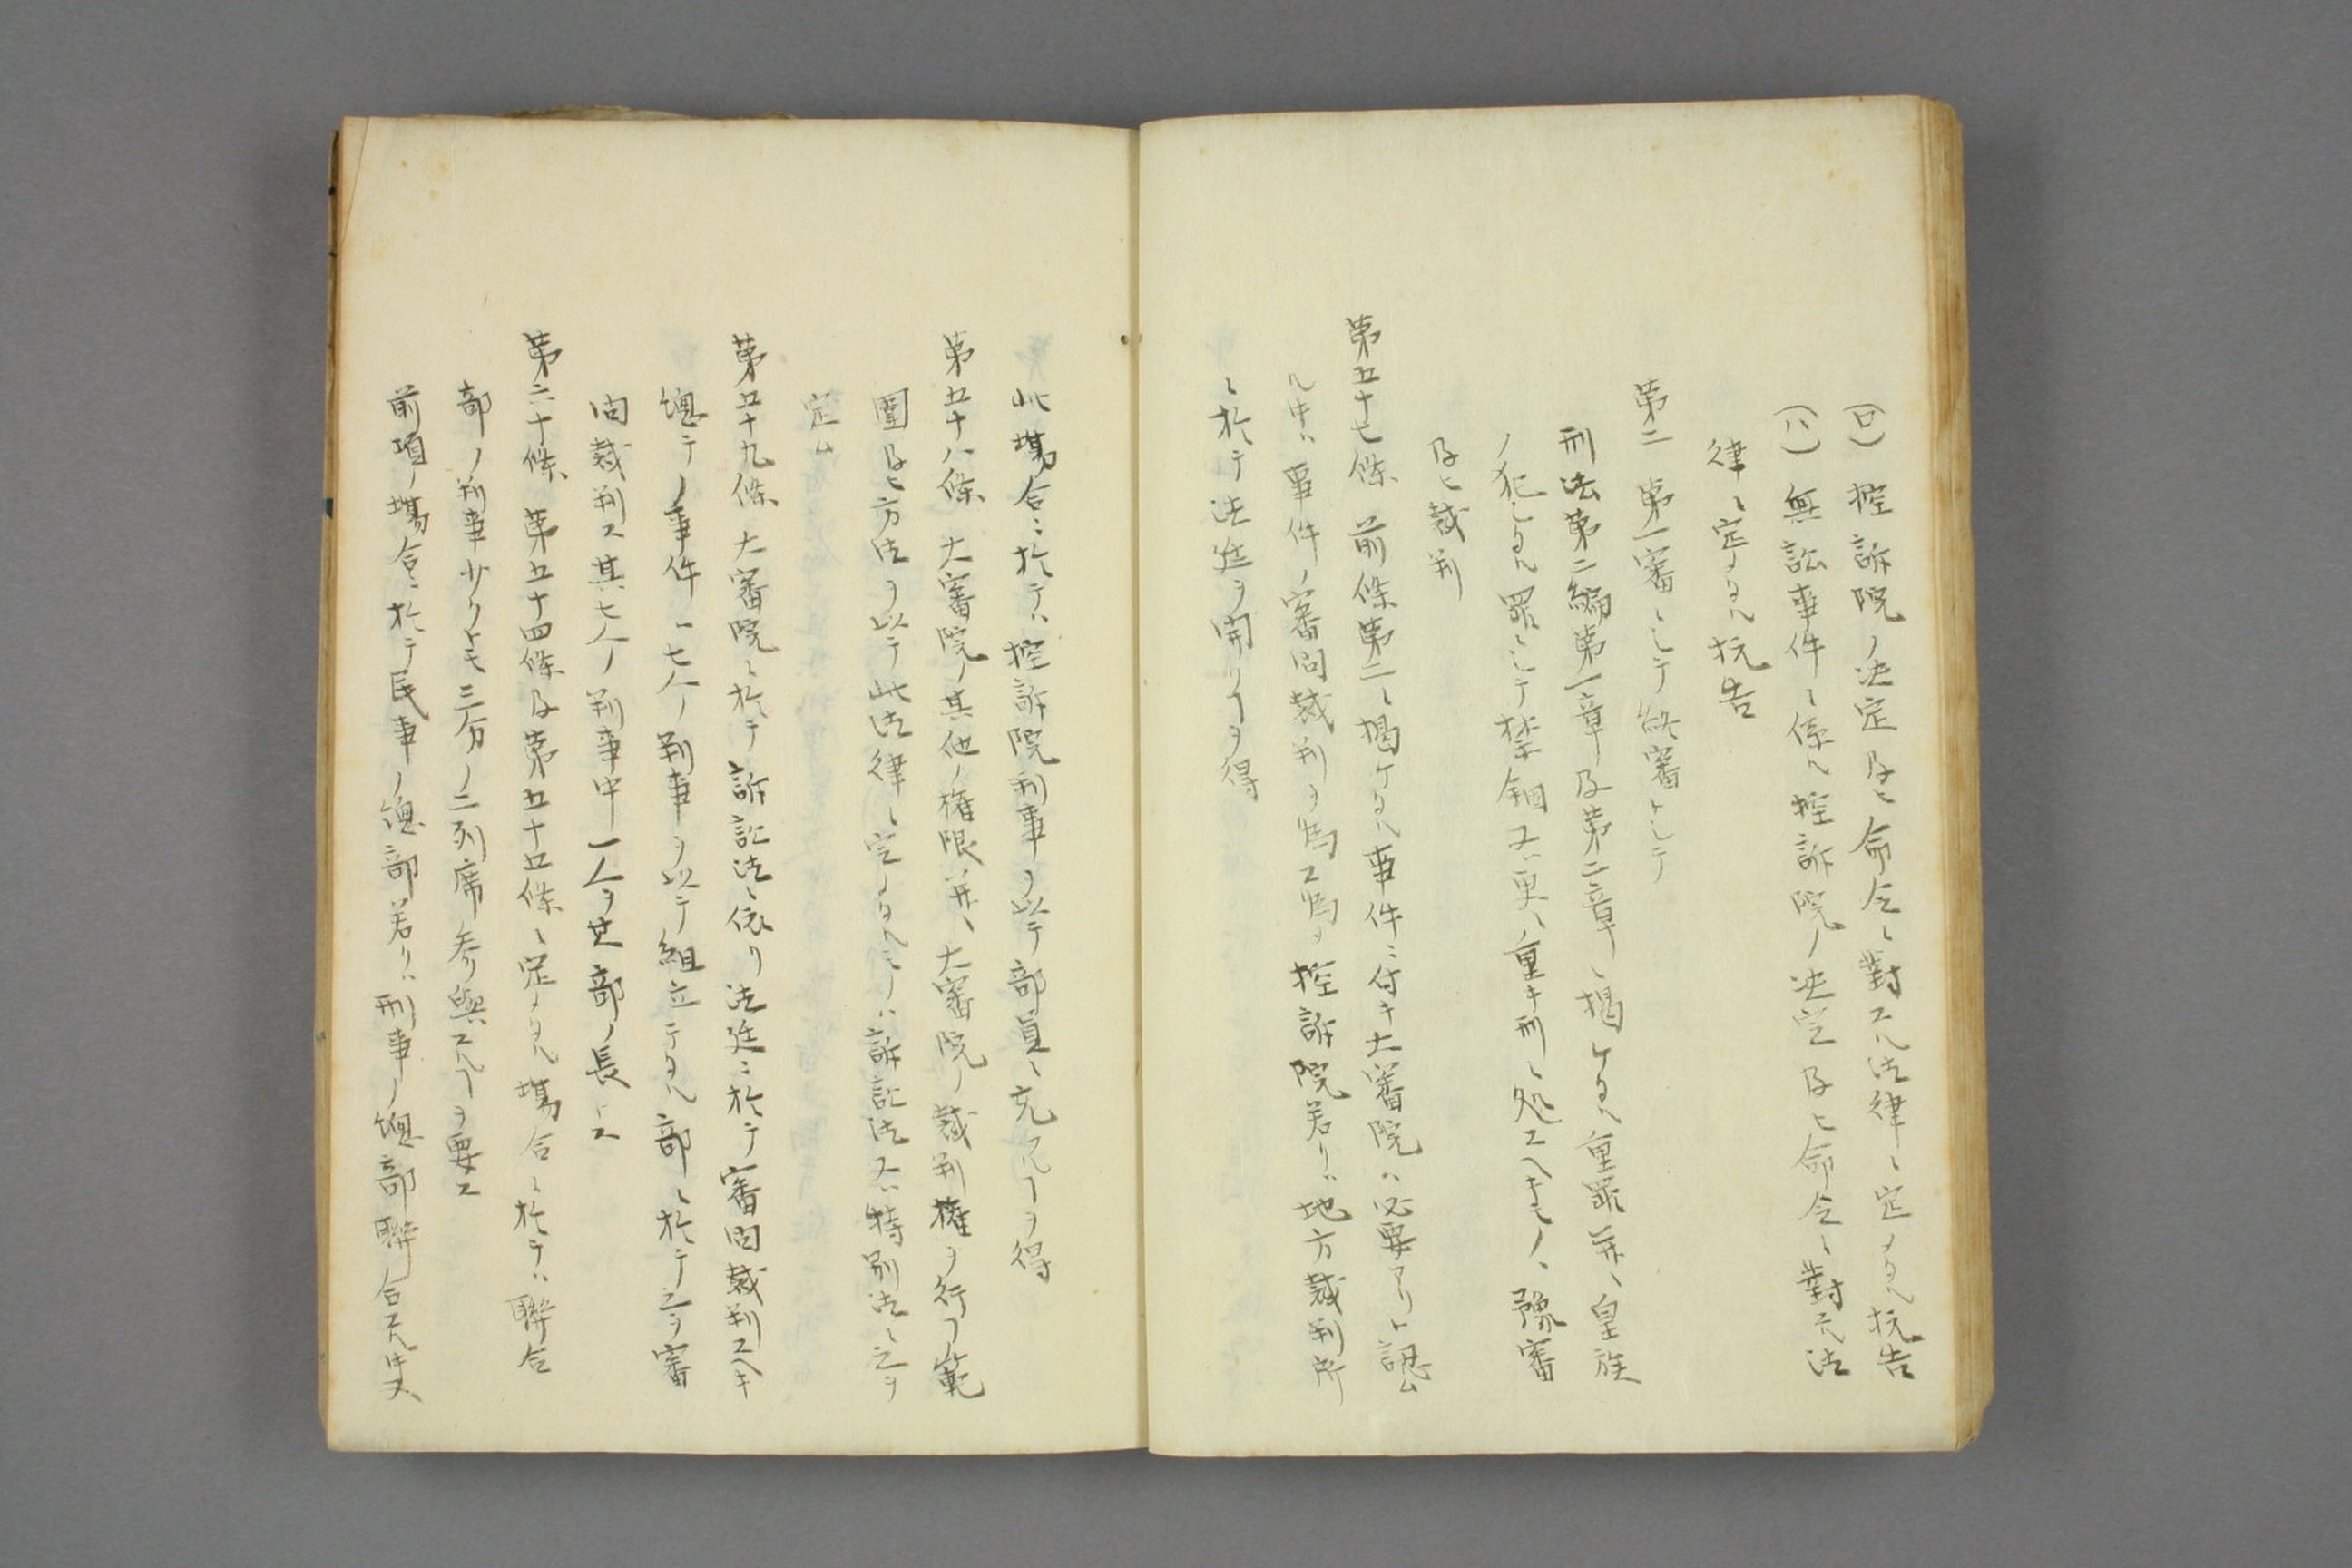 (ロ) 控訴院ノ决定及ヒ命令ニ對スル法律ニ定メタル抗告
(ハ) 無訟事件ニ係ル控訴院ノ决定及ヒ命令ニ對スル法
律ニ定メタル抗告
第二 第一審ニシテ終審トシテ
刑法第二編第一章及第二章ニ掲ケタル重罪并ニ皇族
ノ犯シタル罪ニシテ禁錮又ハ更ニ重キ刑ニ処スヘキモノヽ豫審
及ヒ裁判
第五十七條 前條第二ニ掲ケタル事件ニ付キ大審院ハ必要ナリト認ム
ル𪜈ハ事件ノ審問裁判ヲ為ス為メ控訴院若クハ地方裁判所
ニ於テ法廷ヲ開クヿヲ得
此塲合ニ於テハ控訴院判事ヲ以テ部員ニ充ツルヿヲ得
第五十八條 大審院ノ其他ノ権限并ニ大審院ノ裁判権ヲ行フ範
圍及ヒ方法ヲ以テ此法律ニ定メタルモノハ訴訟法又ハ特別法ニ之ヲ
定ム
第五十九條 大審院ニ於テ訴訟法ニ依リ法廷ニ於テ審問裁判スヘキ
總テノ事件ハ七人ノ判事ヲ以テ組立テタル部ニ於テ之ヲ審
問裁判ス其七人ノ判事中一人ヲ其部ノ長トス
第六十條 第五十四條及第五十五條ニ定メタル塲合ニ於テハ聯合
部ノ判事少クトモ三分ノ二列席参與スルヿヲ要ス
前項ノ塲合ニ於テ民事ノ總部若クハ刑事ノ總部聯合スル𪜈又